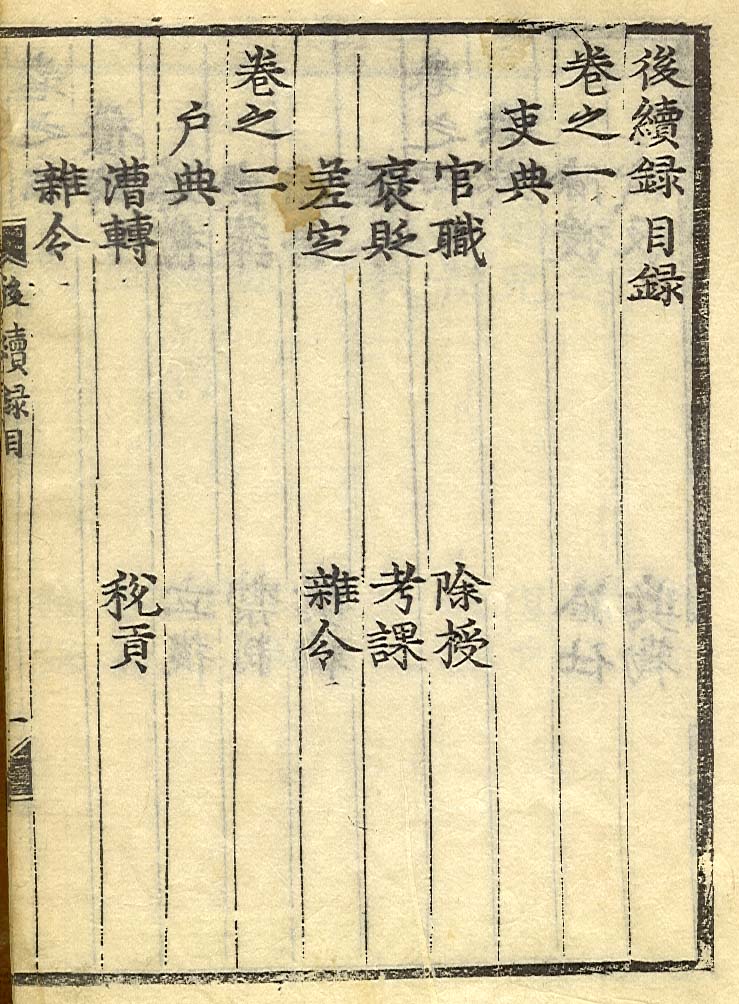 後續録目録
卷之一
吏典
官職 除授
褒貶 考課
差定 雜令
卷之二
户典
漕轉 稅貢
雜令
後續録目 一